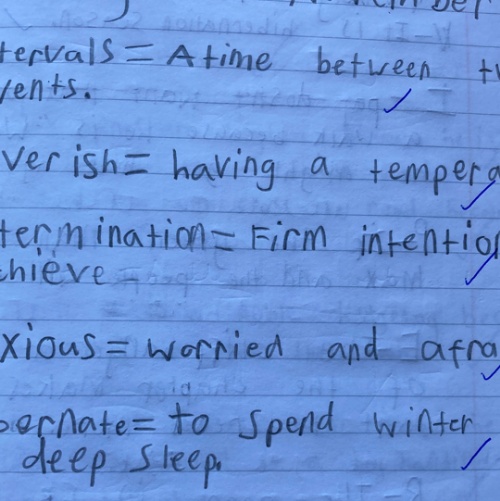 tervals = A time between tw
vents.
verish = having a tempera
termination = Firm intention
chieve
xious = worried and afra
bernate = to spend winter
deep sleep.